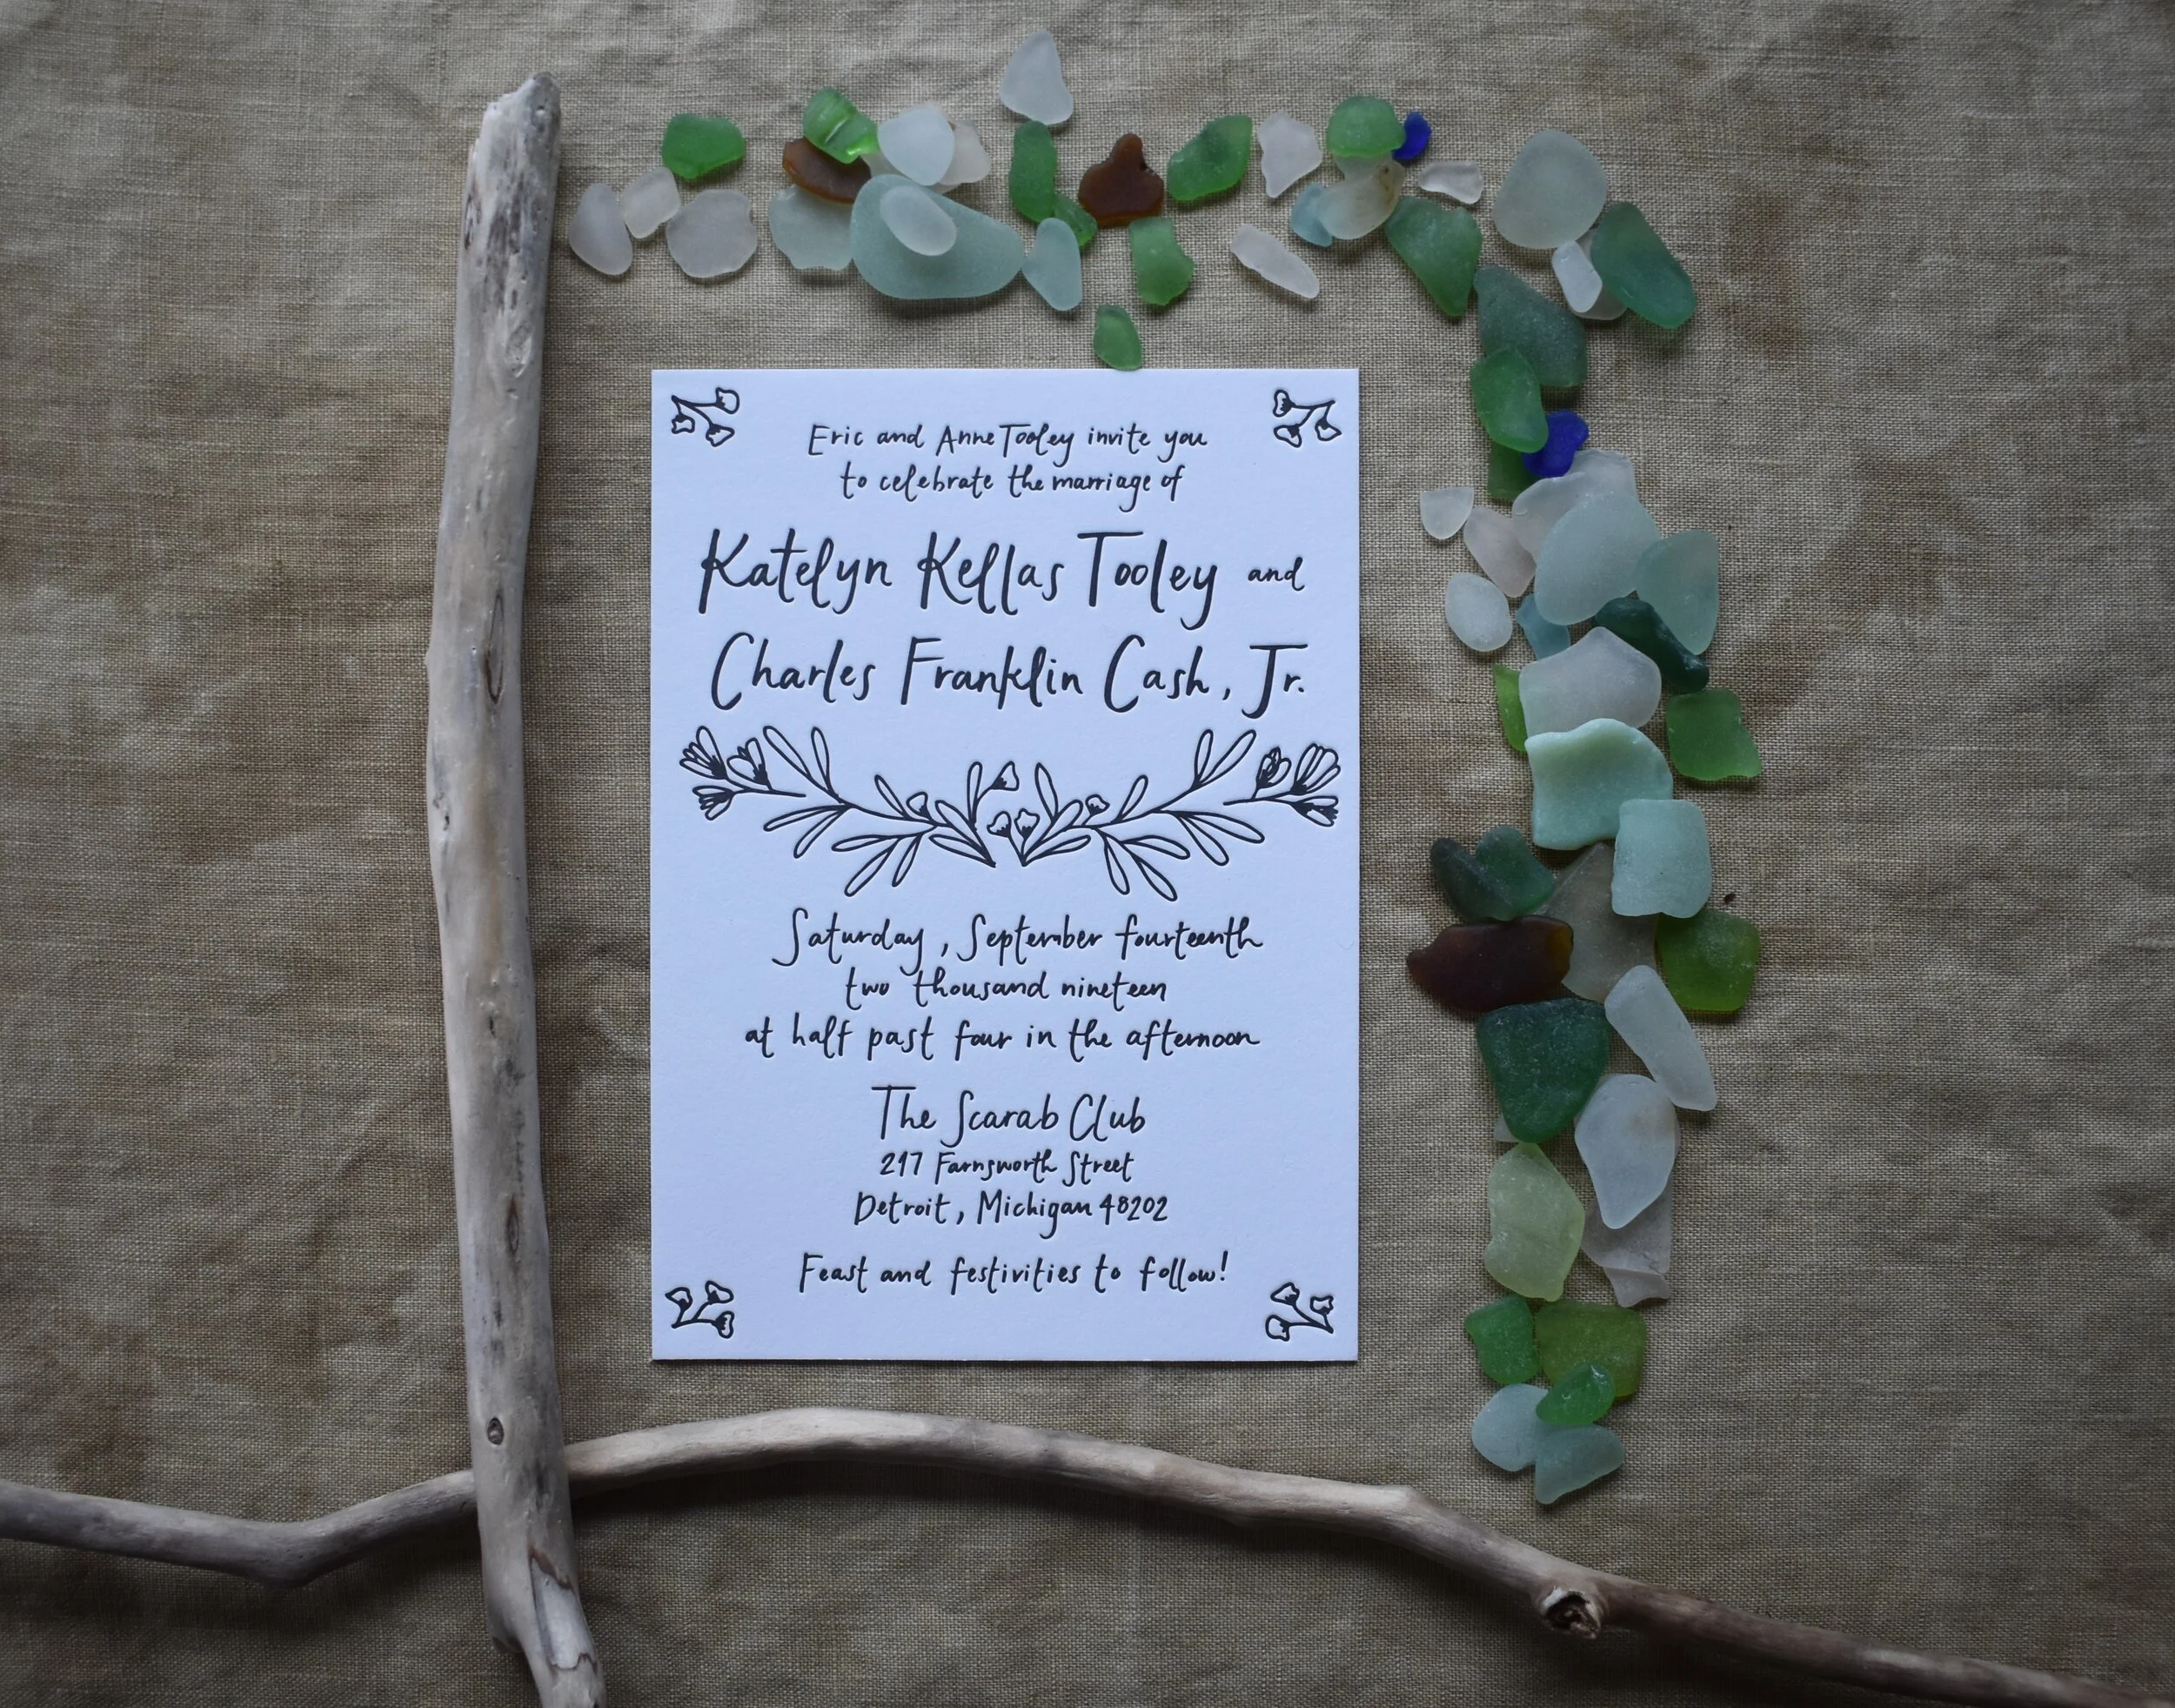 Eric and Anne Tooley invite you
to celebrate the marriage of
Katelyn Kellas Tooley and
Charles Franklin Cash, Jr.
Saturday, September fourteenth
two thousand nineteen
at half past four in the afternoon
The Scarab Club
217 Farnsworth Street
Detroit, Michigan 48202
Feast and festivities to follow!